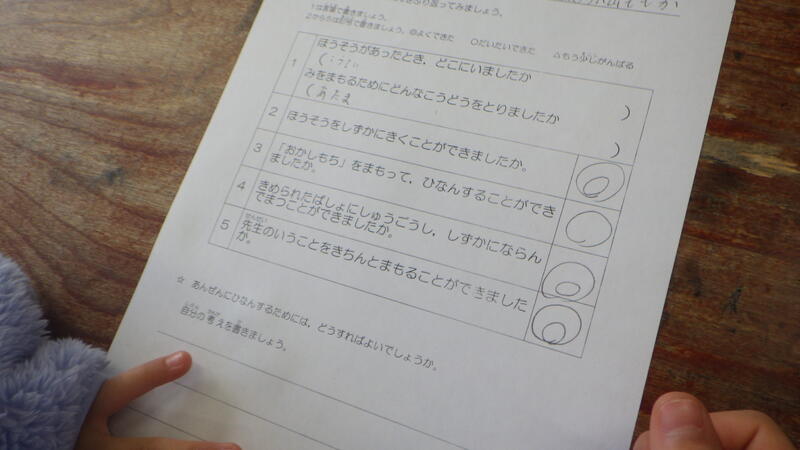 ふり返ってみましょう。
1は言葉で書きましょう。
2から5は記号で書きましょう。◎よくできた ○だいたいできた △もう少しがんばる
1 ほうそうがあったとき，どこにいましたか
( )
みをまもるためにどんなこうどうをとりましたか
(あたま )
2 ほうそうをしずかにきくことができましたか。 ◎
3 「おかしもち」をまもって，ひなんすることができ
ましたか。 ○
4 きめられたばしょにしゅうごうし，しずかにならん
でまつことができましたか。 ◎
5 先生のいうことをきちんとまもることができました
せんせい
か。 ◎
☆ あんぜんにひなんするためには，どうすればよいでしょうか。
自分の考えを書きましょう。